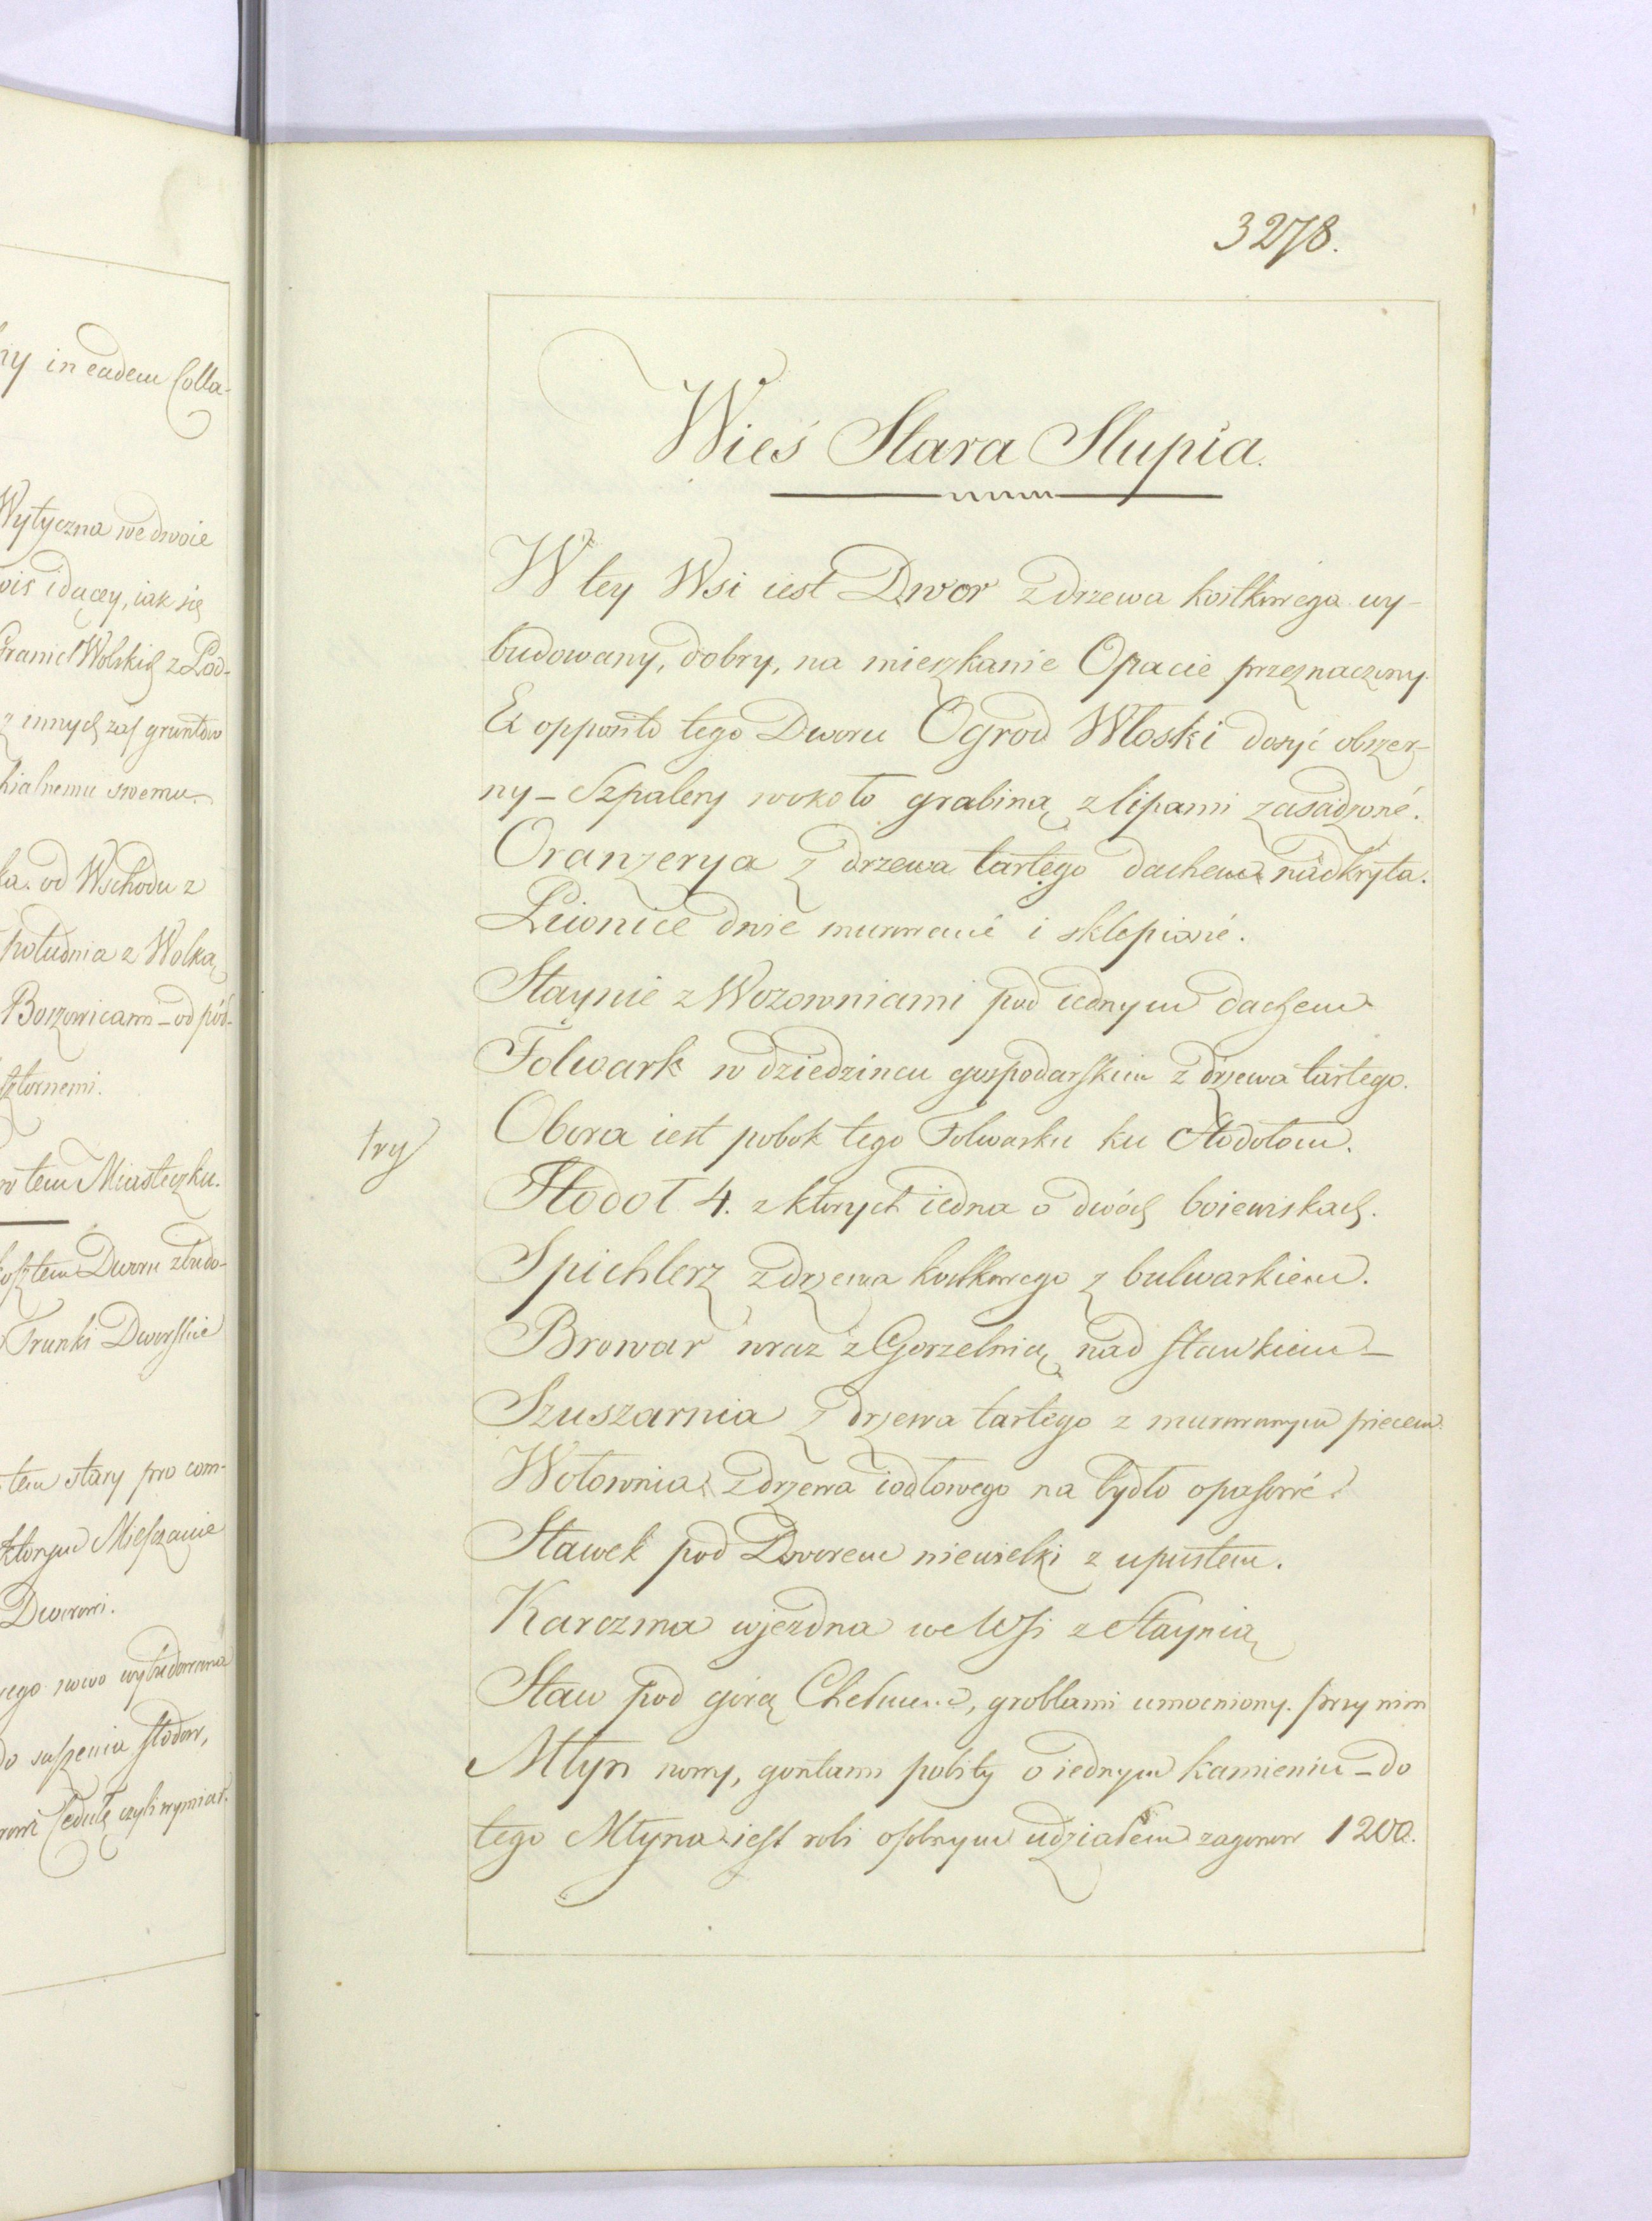 ny in eadem Colla-
Wytyczna we dwoie
idącey, iak się
Granic Wolskich z Pod-
z innych zaś gruntow
swemu.
od Wschodu z
południa z Wolką
Borzowicami – od pół-
w tem Miasteczku.
kosztem Dworu zbudo-
Trunki Dworskie
tem stary pro com-
ktorym Miesczanie
Dworowi.
nowo wybudowana
do suszenia słodow,
Cedułę czyli wymiar.
3278.
Wieś Stara Słupia.
W tey Wsi iest Dwor z drzewa kostkowego wy-
budowany, dobry, na mieszkanie Opacie przeznaczony.
Ex opposito tego Dworu Ogrod Włoski dosyć obszer-
ny – Szpalery wokoło grabiną z lipami zasadzoné.
Oranzerya z drzewa tartego dachem nadkryta.
Piwnice dwie murowané i sklepioné.
Staynie z Wozowniami pod iednym dachem
Folwark w dziedzincu gospodarskim z drzewa tartego.
Obora iest pobok tego Folwarku ku Stodołom.
try
Stodoł 4. z ktorych iedna o dwóch boiewiskach.
Spichlerz z drzewa kostkowego z bulwarkiem.
Browar wraz z Gorzelnią nad stawkiem –
Szuszarnia z drzewa tartego z murowanym piecem.
Wołownia z drzewa iodłowego na bydło opasowé.
Stawek pod Dworem niewielki z upustem.
Karczma wjezdna we Wsi z Staynią
Staw pod gorą Chełmem, groblami umocniony. przy nim
Młyn nowy, gontami pobity o iednym kamieniu – do
tego Młyna iest roli osobnym udziałem zagonow 1200.